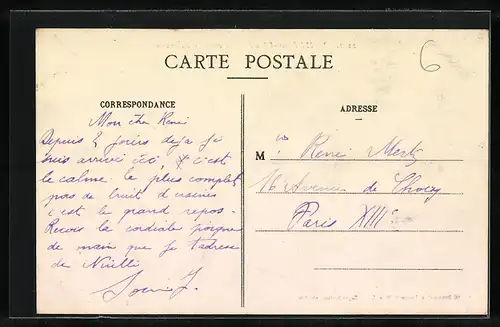 CARTE POSTALE
CORRESPONDANCE
Mon cher René
Depuis 2 jours deja je
suis arrivé ici, & c'est
le calme le plus complet
pas de bruit d'usines
c'est le grand repos -
Recois la cordiale poigne
de main que je t'adresse
de
Louis J.
ADRESSE
M René Mertz
16 Avenue de Choisy
Paris XIIIe
6